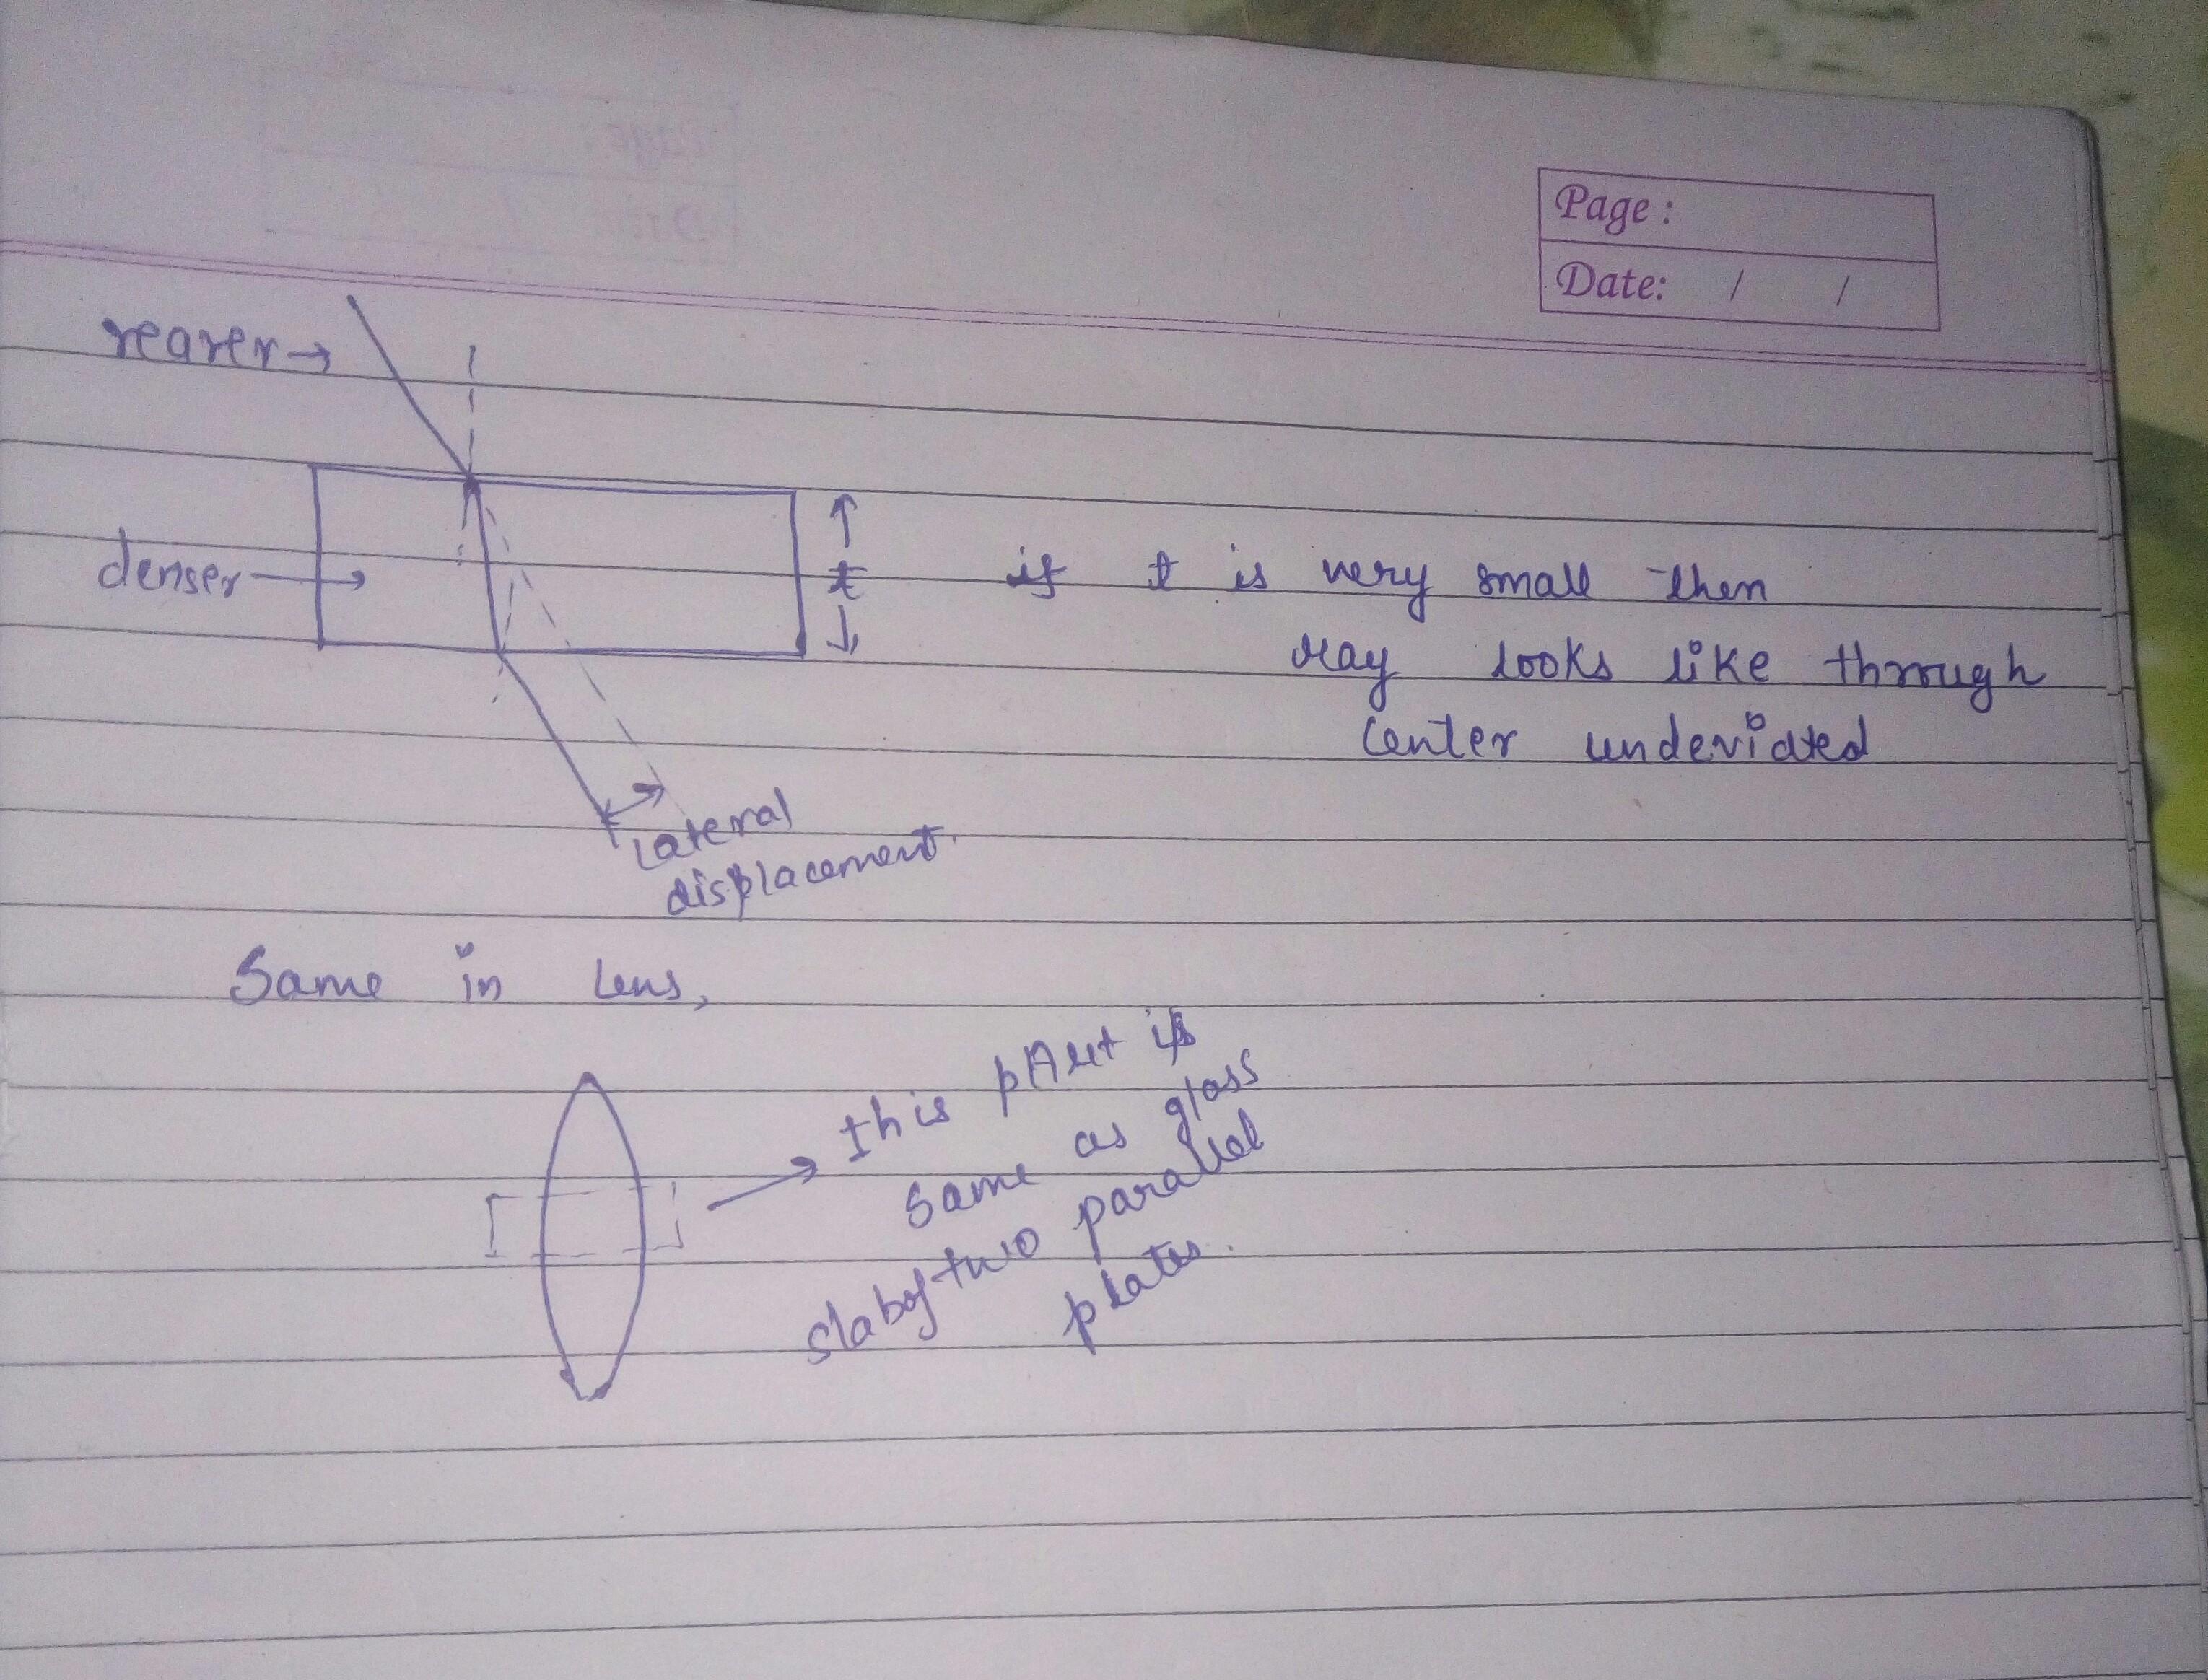 Page :
Date: / /
rearer →
denser →
t
if t is very small then
ray looks like through
center undeviated
Lateral
displacement.
Same in Lens,
this pArt is
same as glass
slab of two parallel
plates.